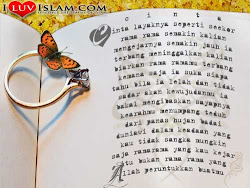 I LUV ISLAM.COM
C i n t a
inta layaknya seperti seekor
rama rama semakin kalian
mengejarnya semakin jauh ia
terbang meninggalkan kalian
terbang
mana saja ia suka siapa
tahu bila ia lelah dan tidak
sadar akan kewujudanmu ia
bakal mengibaskan sayapnya
daerahmu menumpang teduh
dari panas hujan yang
duniawi dalam keadaan yang
kau tidak sangka mungkin
saja ramarama yang kau kejar
itu bukan rama rama yang
Allah peruntukkan buatmu